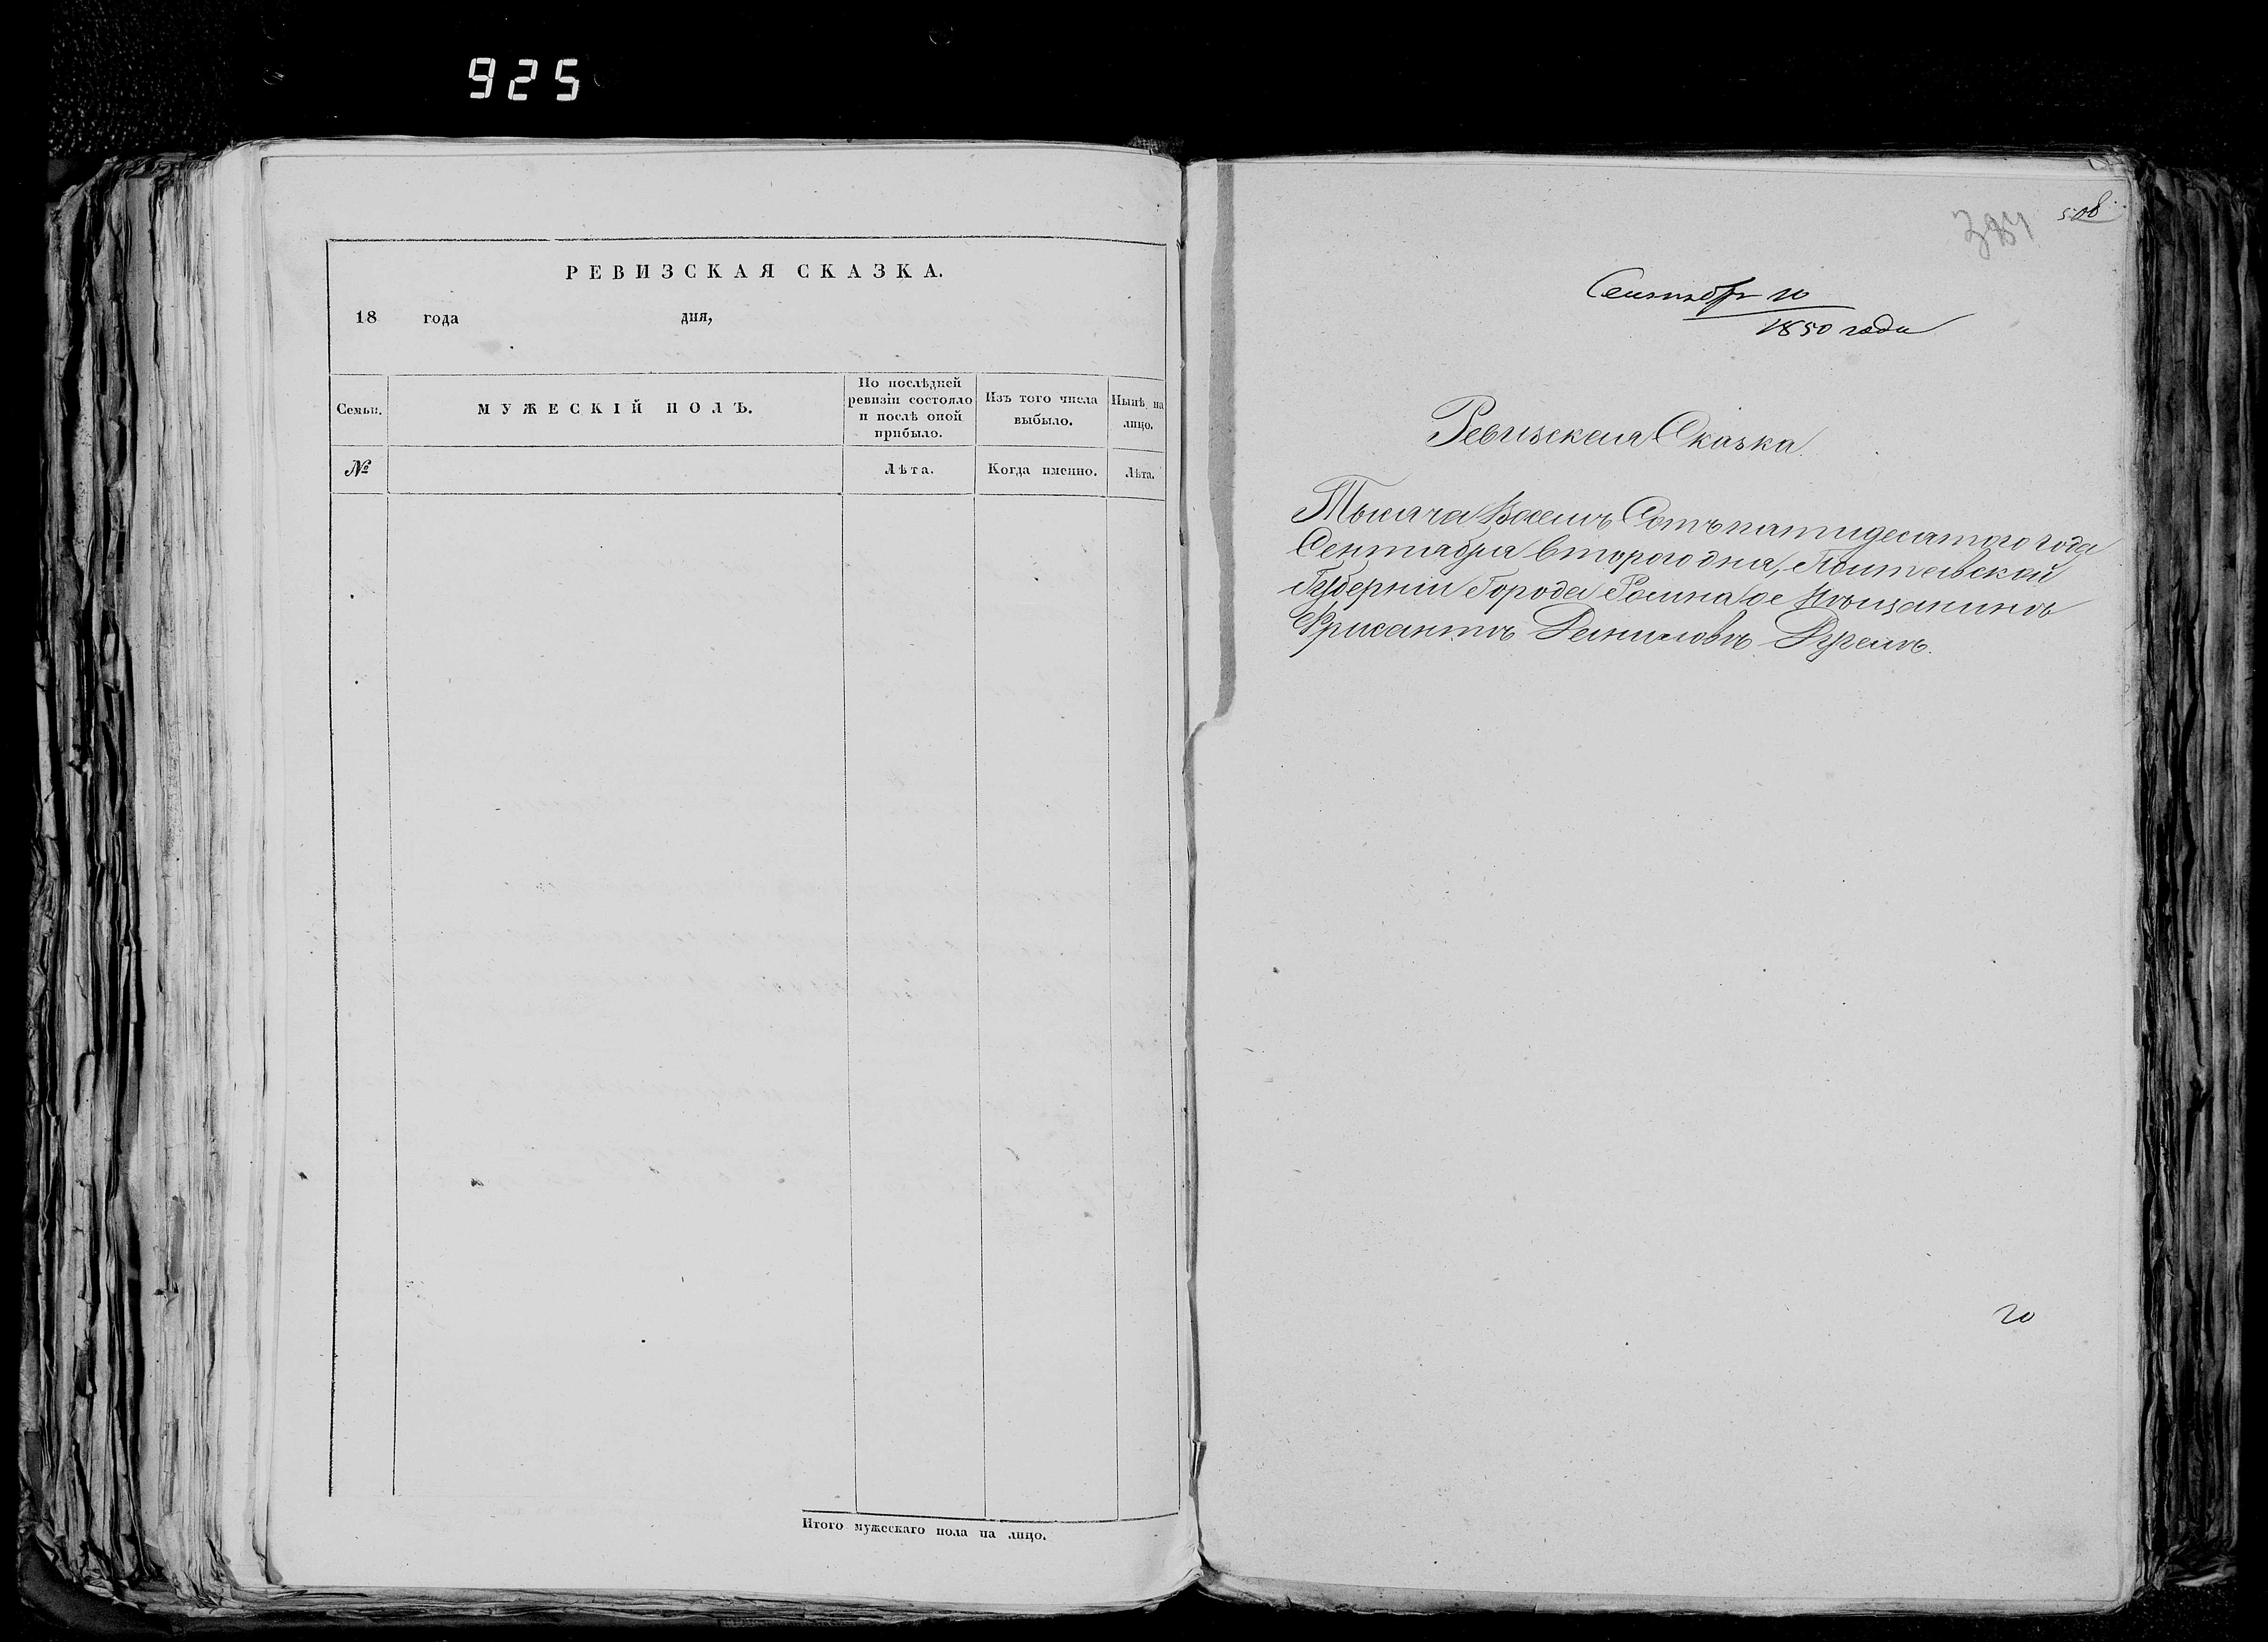 925
РЕВИЗСКАЯ СКАЗКА.
18 года дня,
Семьи.
МУЖЕСКІЙ ПОЛЪ.
По послѣдней
ревизіи состояло
и послѣ оной
прибыло.
Изъ того числа
выбыло.
Нынѣ на
лицо.
№
Лѣта.
Когда именно.
Лѣта.
Итого мужескаго пола на лицо.
508
Сентябр 10
1850 года
Ревизская Сказка
Тысяча Восемь Сотъ пятидесятого года
Сентября второго дня, Полтавской
Губерніи Города Ромна ое Мѣщанинъ
Хрисантъ Даниловъ
20